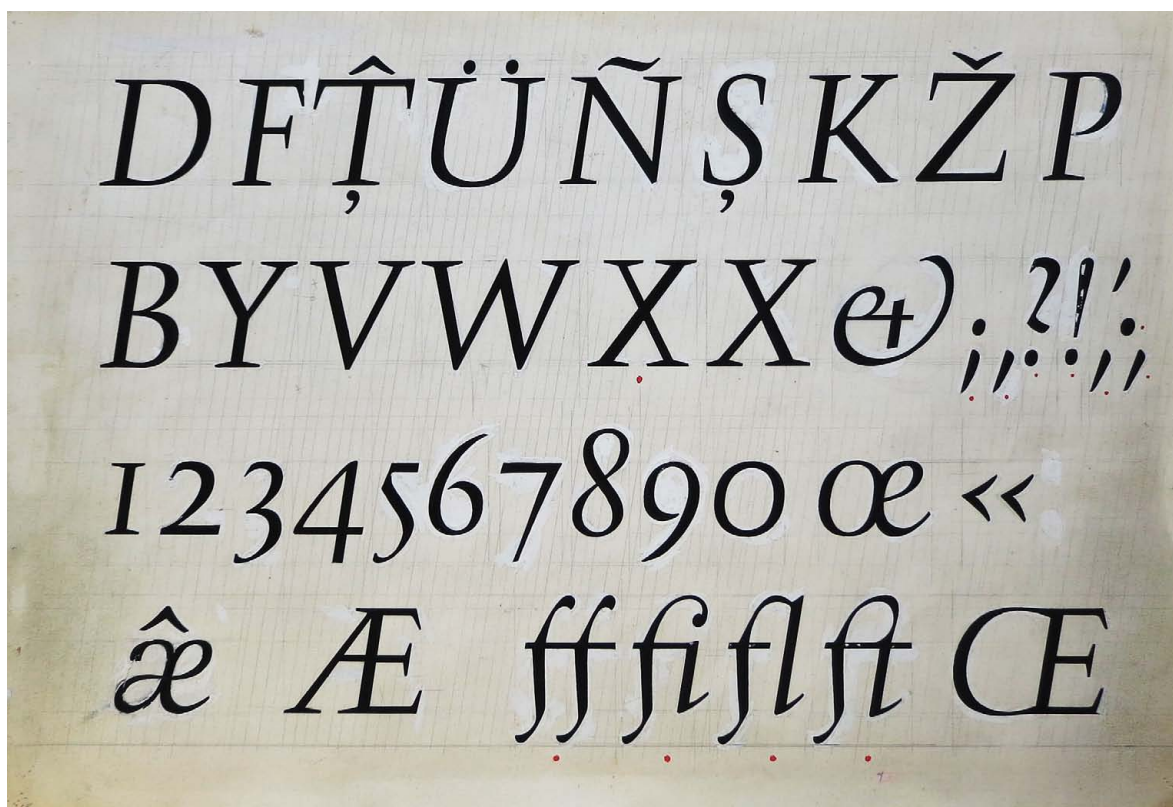 D F Ț̂ Ü Ñ Ș K Ž P
B Y V W X X & ; , ? ! ' . ; ,
1 2 3 4 5 6 7 8 9 0 œ «
æ̂ Æ ff fi fl ft Œ